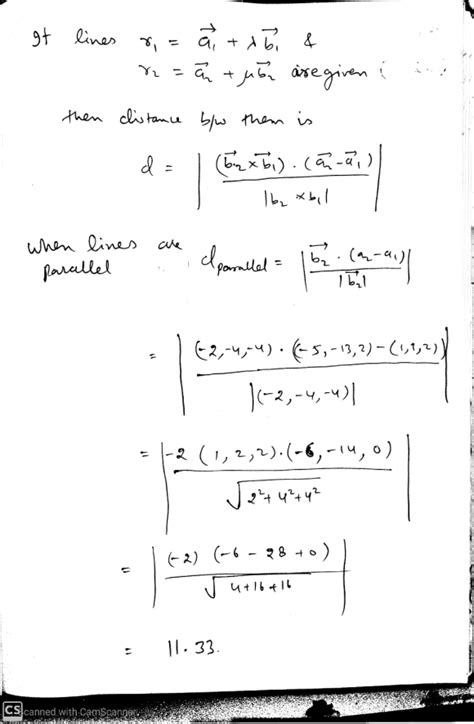 If lines r₁ = a⃗₁ + λb⃗₁ &
r₂ = a⃗₂ + μb⃗₂ are given
then distance b/w them is
d = | (b⃗₂ × b⃗₁) . (a⃗₂ - a⃗₁) / |b₂ × b₁| |
when lines are parallel d parallel = | b⃗₂ . (a₂ - a₁) / |b⃗₂| |
= | (-2, -4, -4) . (-5, -13, 2) - (1, 1, 2) / |(-2, -4, -4)| |
= | -2 (1, 2, 2) . (-6, -14, 0) / √2² + 4² + 4² |
= | (-2) (-6 - 28 + 0) / √4 + 16 + 16 |
= 11.33.
CS canned with CamScanner